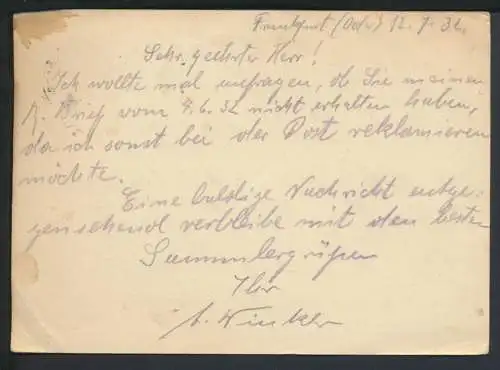 Frankfurt (Oder) 12. 7. 32.
Sehr geehrter Herr!
Ich wollte mal anfragen, ob Sie meinen
R. Brief vom 7.6.32 nicht erhalten haben,
da ich sonst bei der Post reklamieren
möchte.
Eine baldige Nachricht entge-
gensehend verbleibe mit den besten
Sammlergrüßen
Ihr
A. Winkler